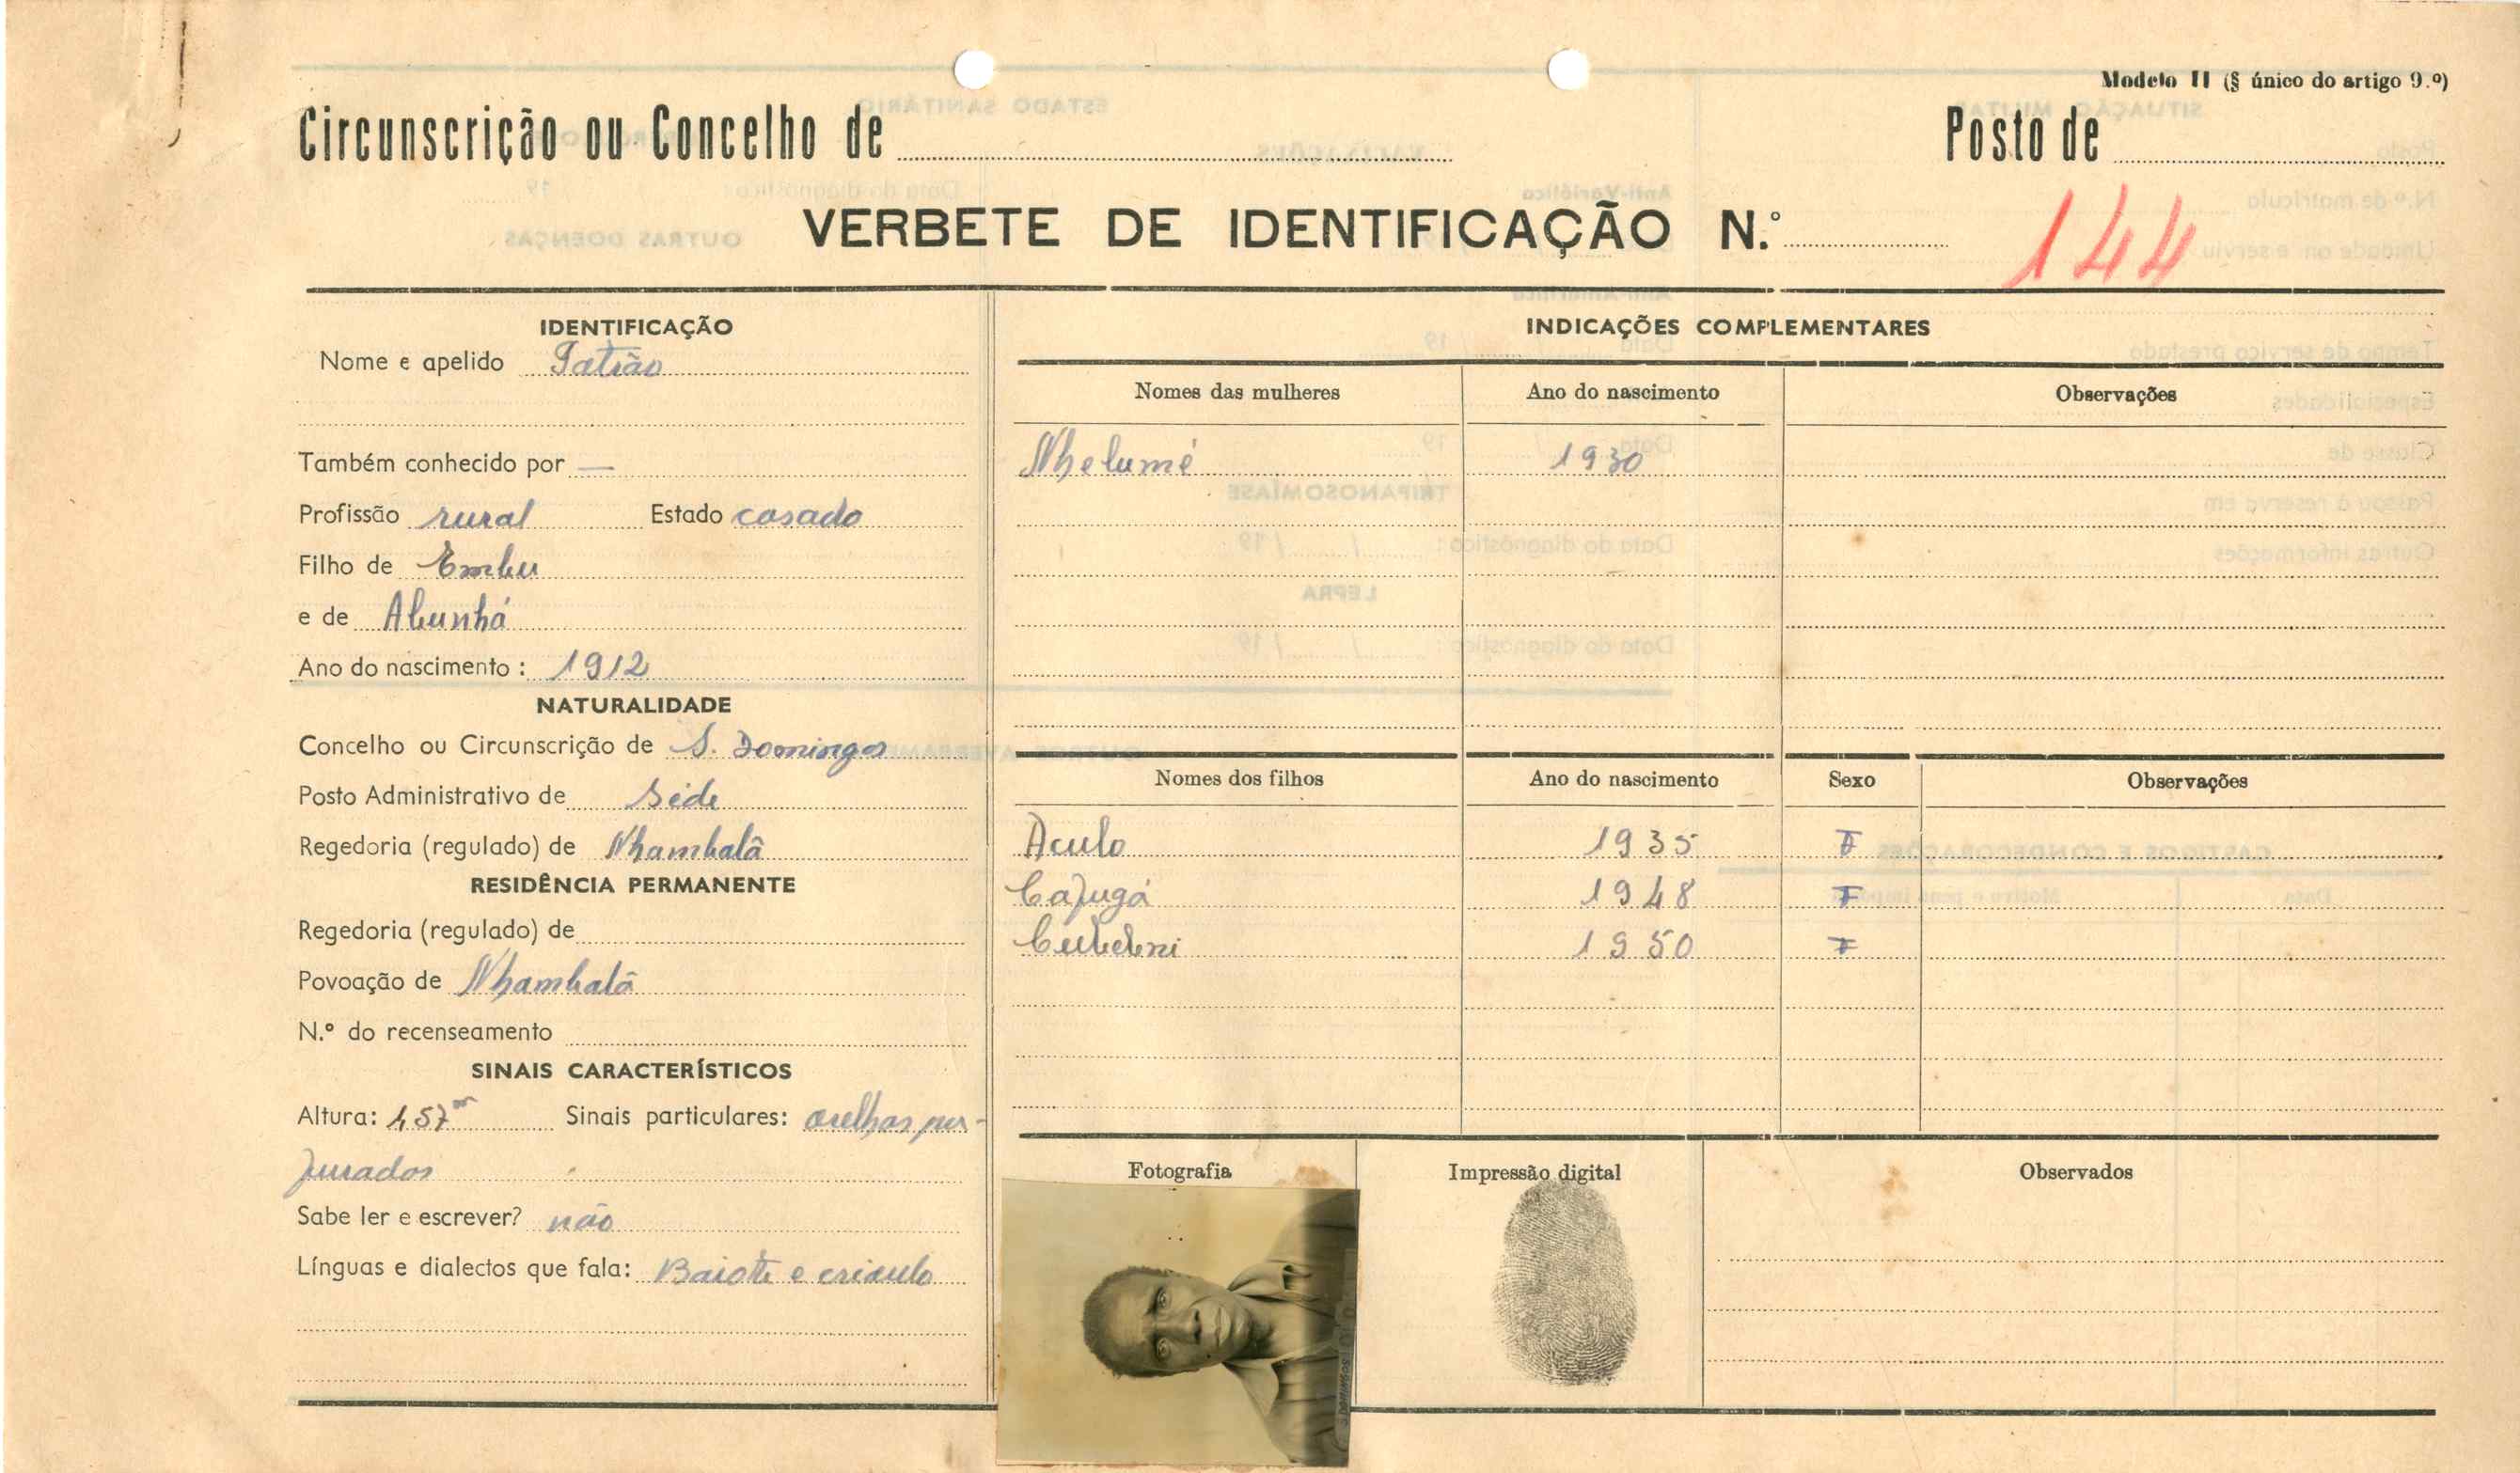 Modelo II (§ único do artigo 9.º)
Circunscrição ou Concelho de
Posto de
VERBETE DE IDENTIFICAÇÃO N.º
144
IDENTIFICAÇÃO
Nome e apelido
Também conhecido por —
Profissão rural Estado casado
Filho de Embu
e de Abunhá
Ano do nascimento : 1912
NATURALIDADE
Concelho ou Circunscrição de S. Domingos
Posto Administrativo de Sede
Regedoria (regulado) de Nhambalã
RESIDÊNCIA PERMANENTE
Regedoria (regulado) de
Povoação de Nhambalã
N.º do recenseamento
SINAIS CARACTERÍSTICOS
Altura: 1,57m Sinais particulares: orelhas per-
furados
Sabe ler e escrever? não
Línguas e dialectos que fala: Baiote e crioulo
INDICAÇÕES COMPLEMENTARES
Nomes das mulheres Ano do nascimento Observações
Nhelumé 1930
Nomes dos filhos Ano do nascimento Sexo Observações
Aculo 1935 F
Cafugá 1948 F
1950 F
Fotografia Impressão digital Observados